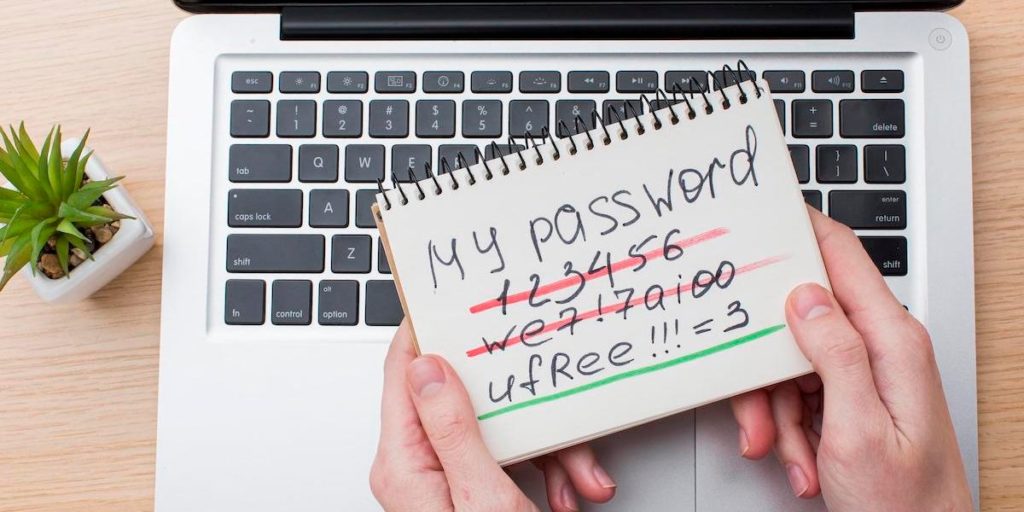 esc
~ ! 1 @ 2 # 3 $ 4 % 5 ^ 6
+ = delete
tab Q W E
} ] | \
caps lock A
enter return
shift Z
shift
fn control alt option
My password
123456
we7!7aioo
ufRee!!!=3